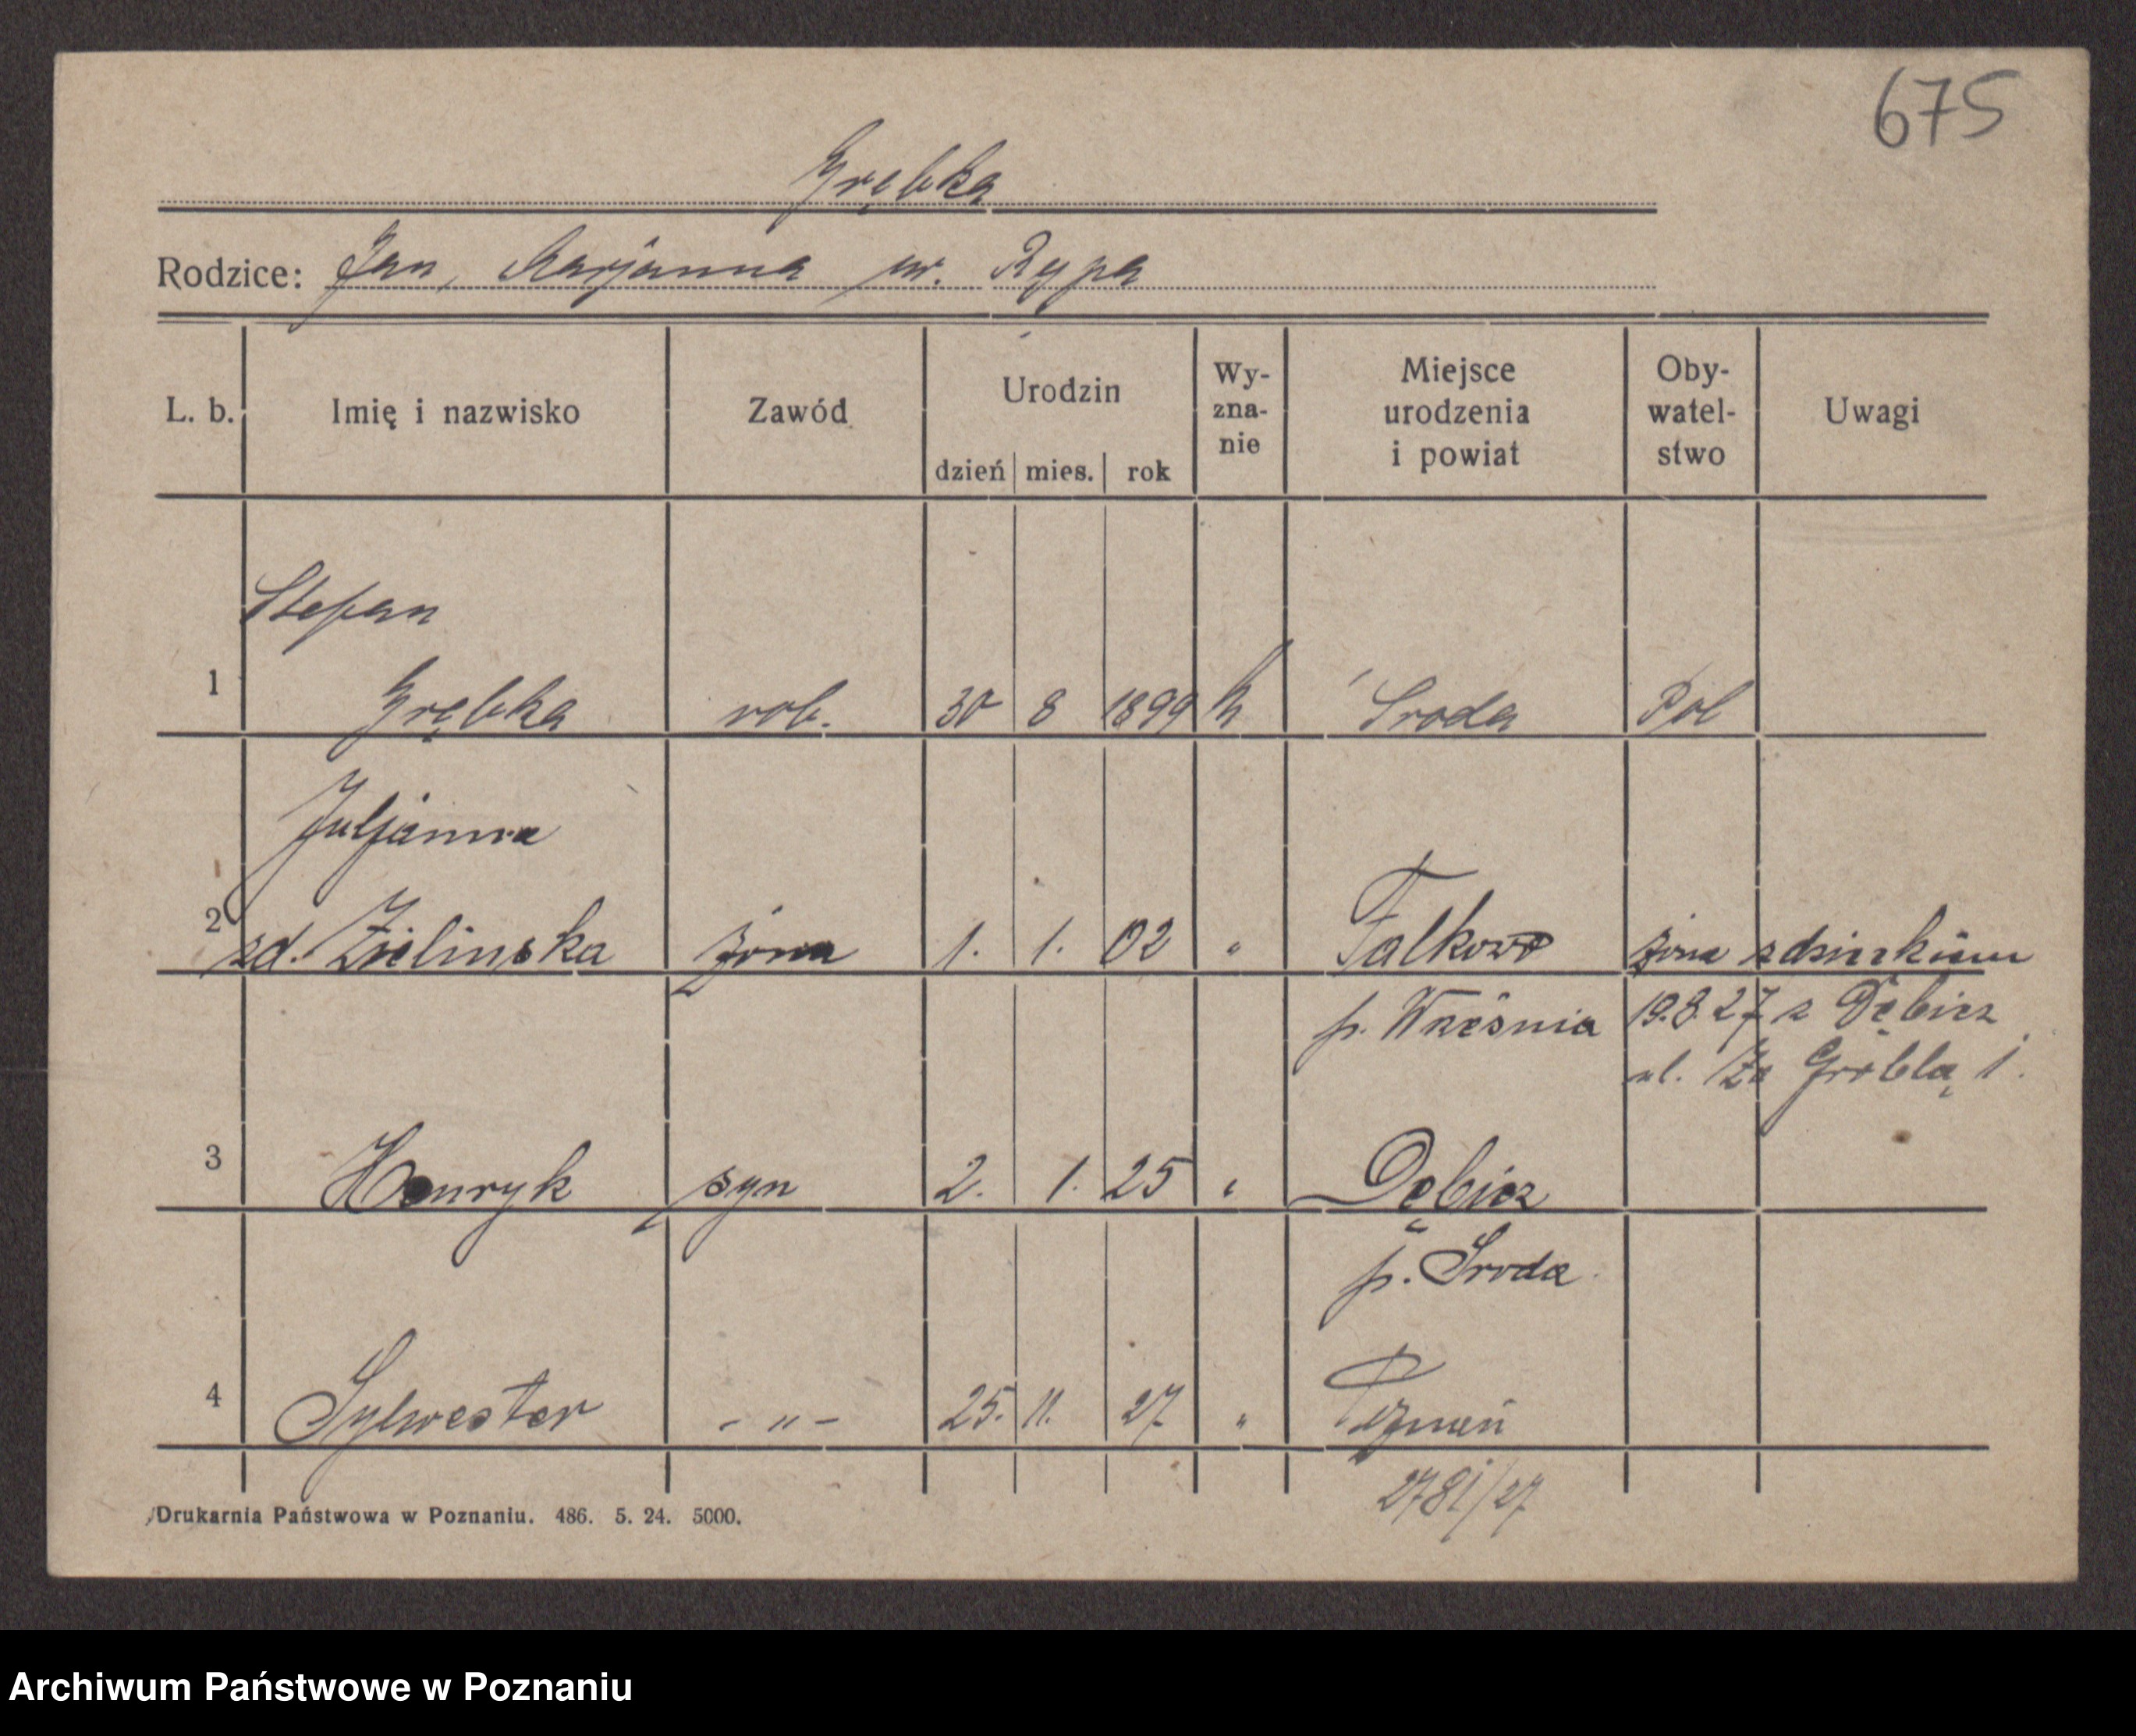 675
Grębka
Rodzice: Jan, Marjanna ur. Rypa
L. b. Imię i nazwisko Zawód Urodzin dzień mies. rok Wy-zna-nie Miejsce urodzenia i powiat Oby-watel-stwo Uwagi
Stefan
1 Grębka rob. 30 8 1899 k Środa Pol
Juljanna
2 zd. Zielinska żona 1. 1. 02 " Falkowo żona z dzieckiem
p. Września 19.8.27 z Dębicz
ul. Za Groblą 1.
3 Henryk syn 2. 1. 25 " Dębicz
p. Środa
4 Sylwester - " - 25. 11. 27 " Poznań
2781/27
Drukarnia Państwowa w Poznaniu. 486. 5. 24. 5000.
Archiwum Państwowe w Poznaniu